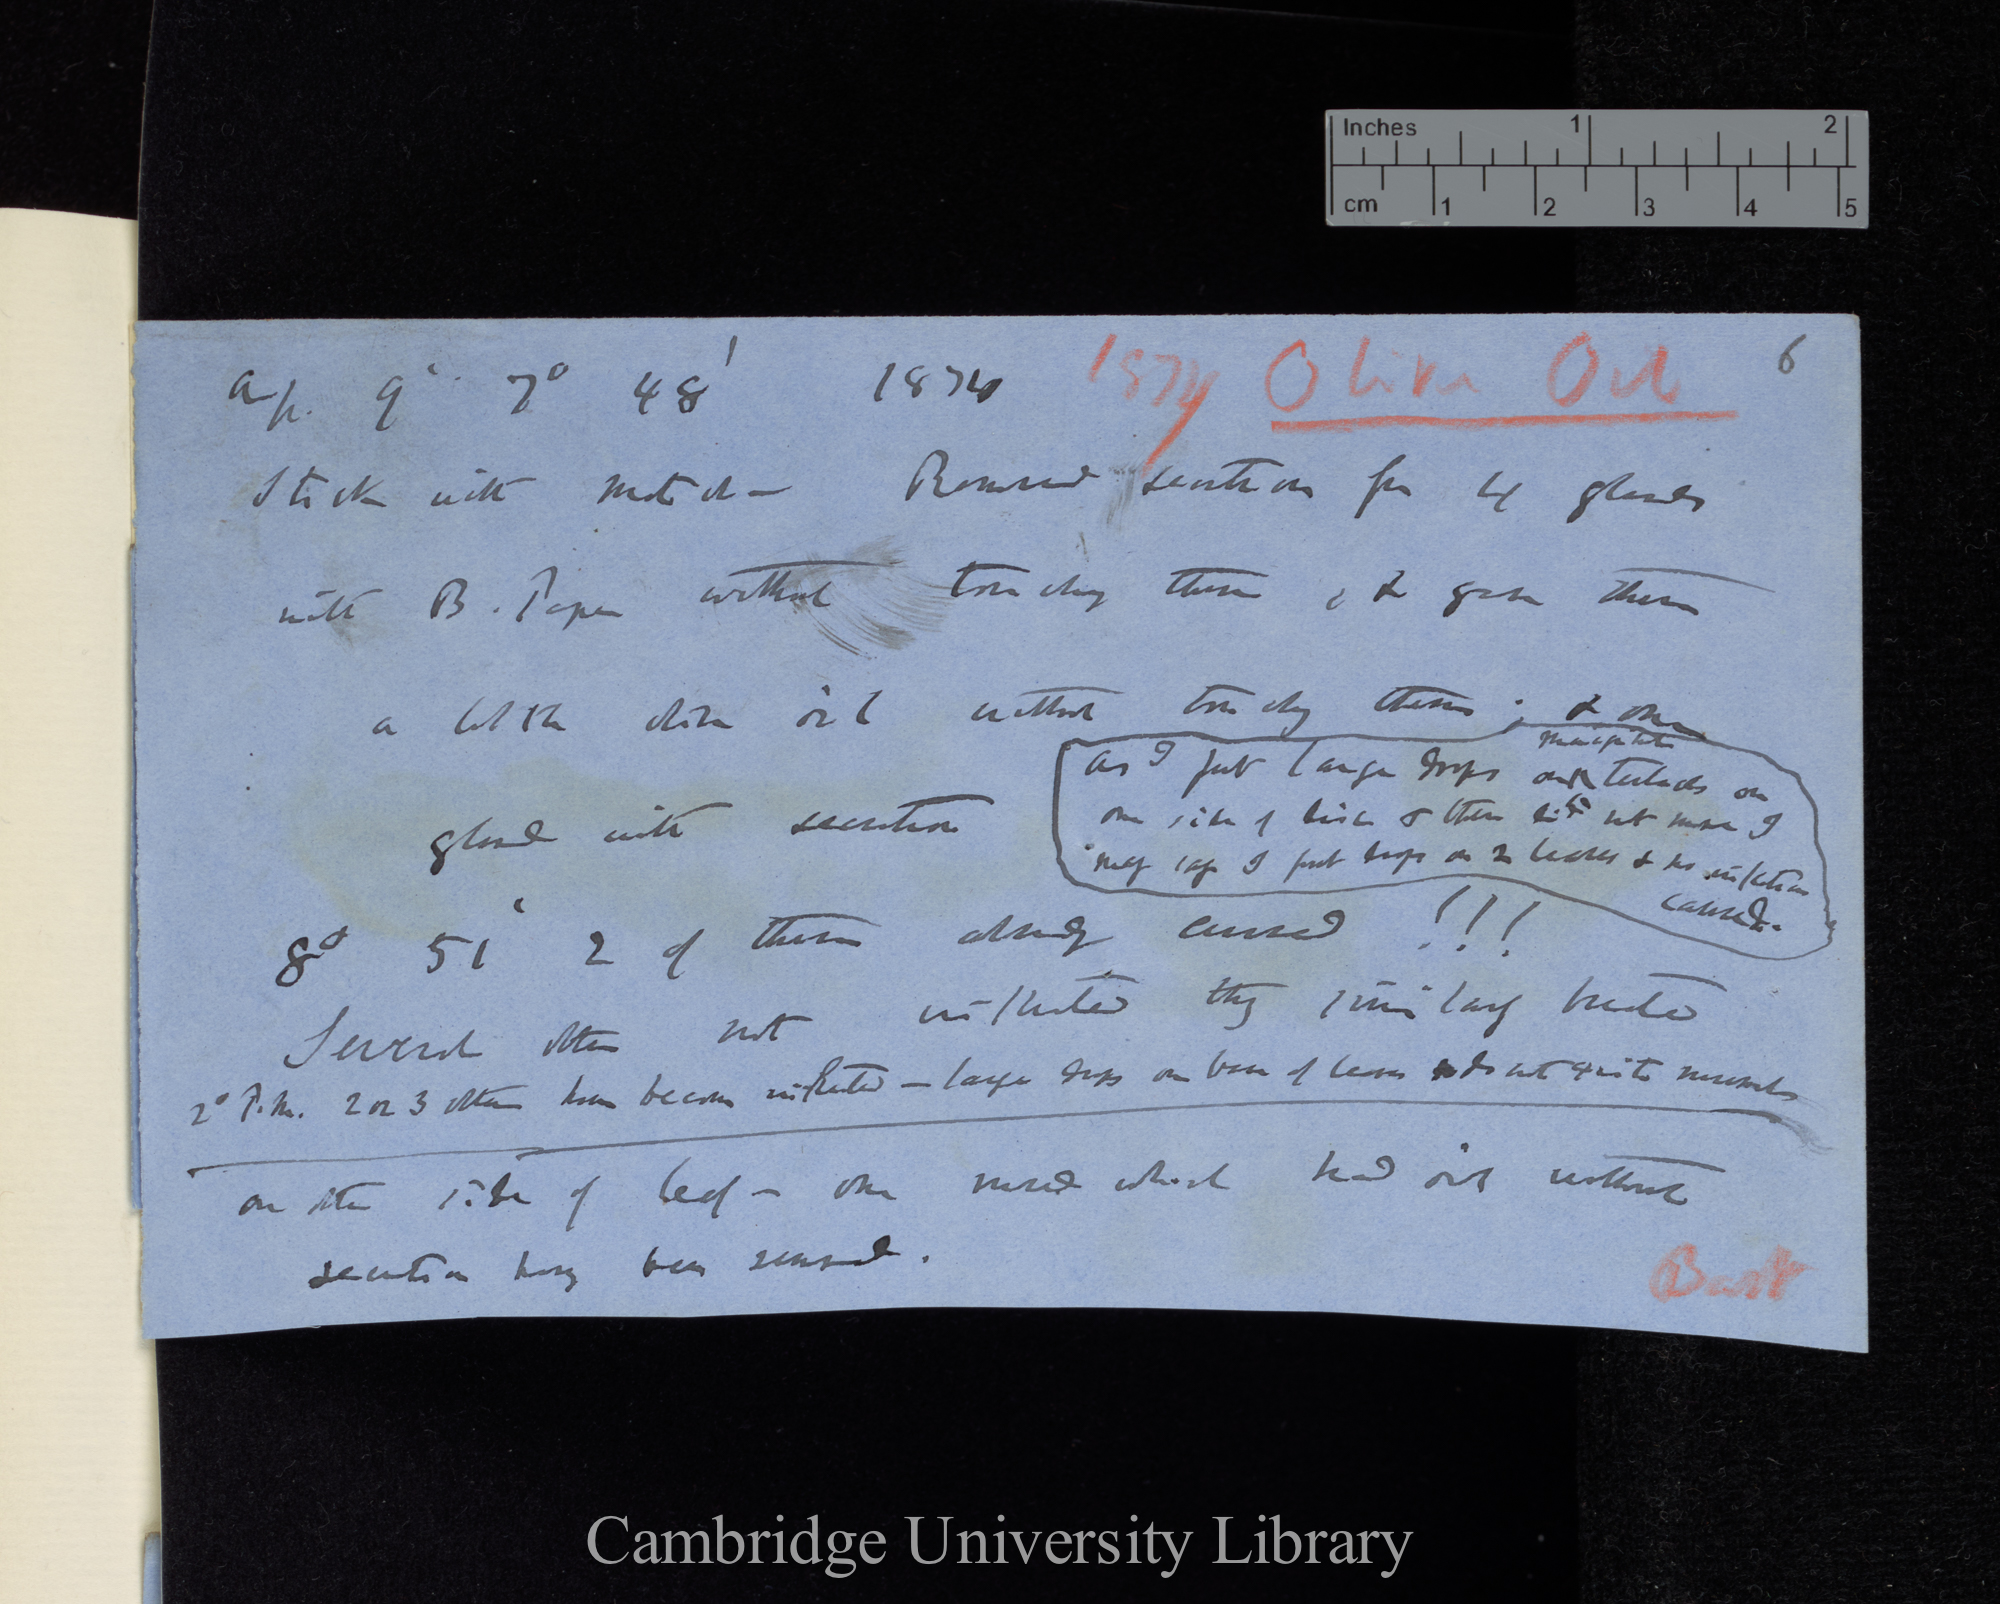 Inches 1 2
cm 1 2 3 4 5
Ap. 9° 7° 48' 1874 1874 Olive Oil 6
Stick with notch — Removed secretion from 4 glands
with B. Paper without touching them, & gave them
a little olive oil without touching them; & one
gland with secretion
As I put large drops on tentacles on
one side of disc & then did not move I
may say I put drops on 2 leaves & no inflection
caused.
8° 51' 2 of them already curved !!!
Several others not inflected tho' similarly treated
2° P.m. 2 or 3 others have become inflected — large drops on two of leaves do not quite
on other side of leaf — one moved which had oil without
secretion having been removed.
Cambridge University Library